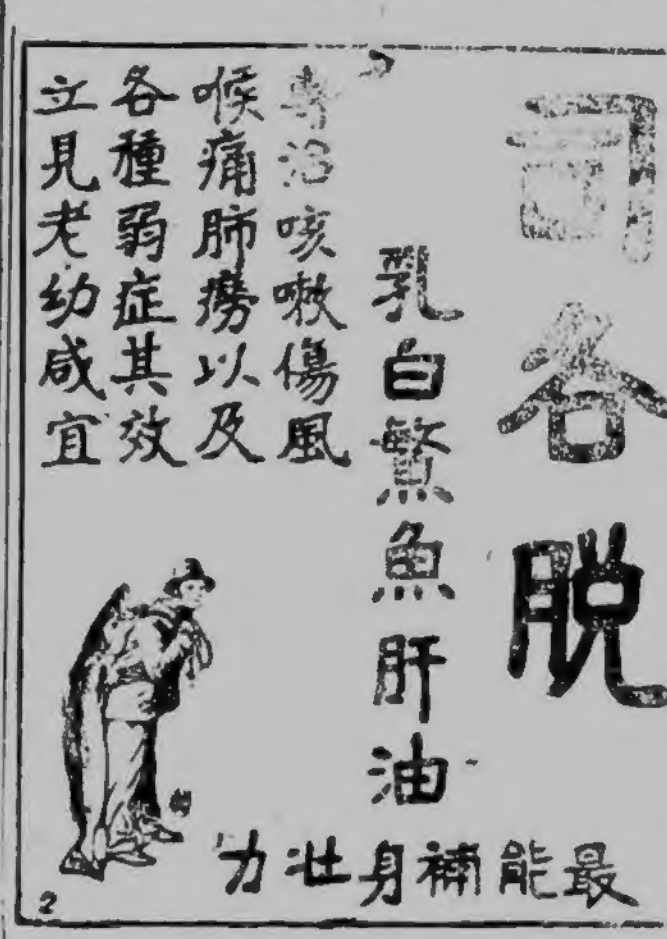 司各脱
乳白鰵魚肝油
專治咳嗽傷風
喉痛肺癆以及
各種弱症其效
立見老幼咸宜
最能補身壯力
2